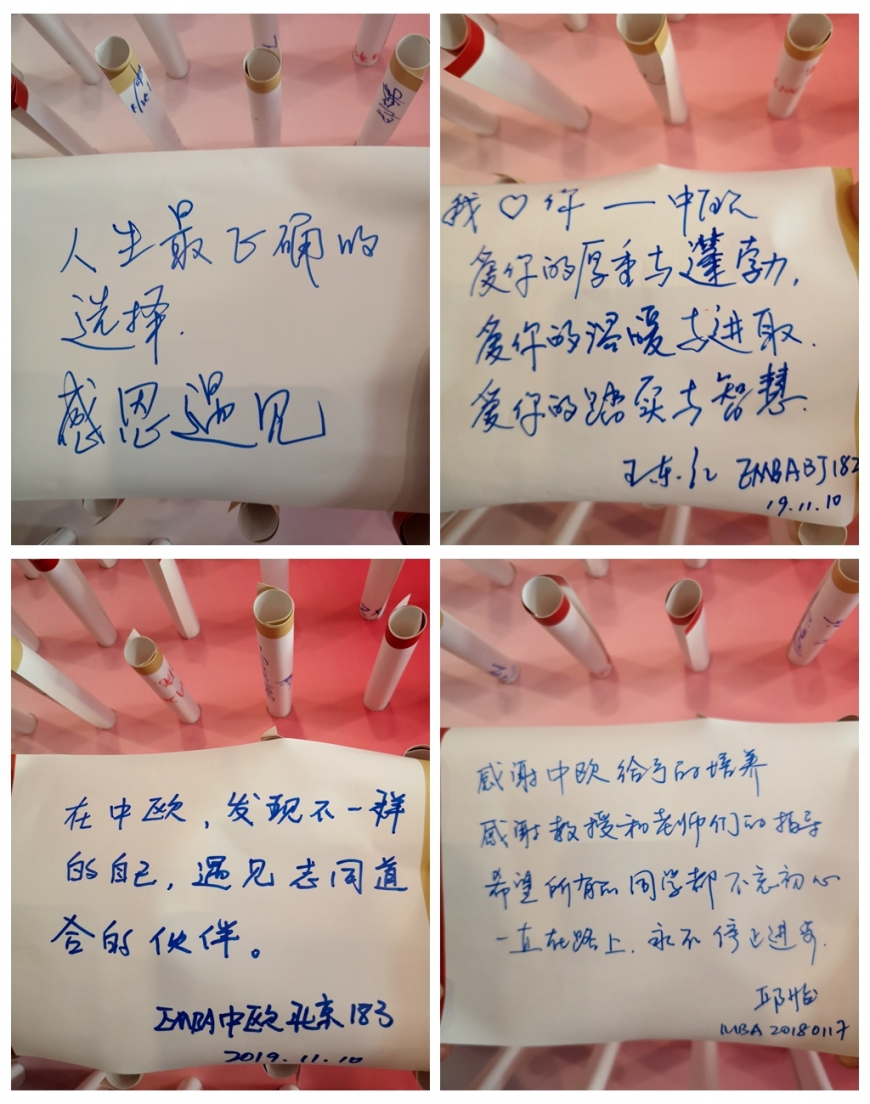 人生最正确的
选择.
感恩遇见
我♡你——中欧
爱你的厚重与蓬勃,
爱你的温暖与进取.
爱你的踏实与智慧.
EMBABJ182
19.11.10
在中欧,发现不一样
的自己,遇见志同道
合的伙伴。
EMBA中欧北京183
2019.11.10
感谢中欧给予的培养
感谢教授和老师们的指导
希望所有的同学都不忘初心
一直在路上.永不停止进步.
邱怡
MBA 20180117